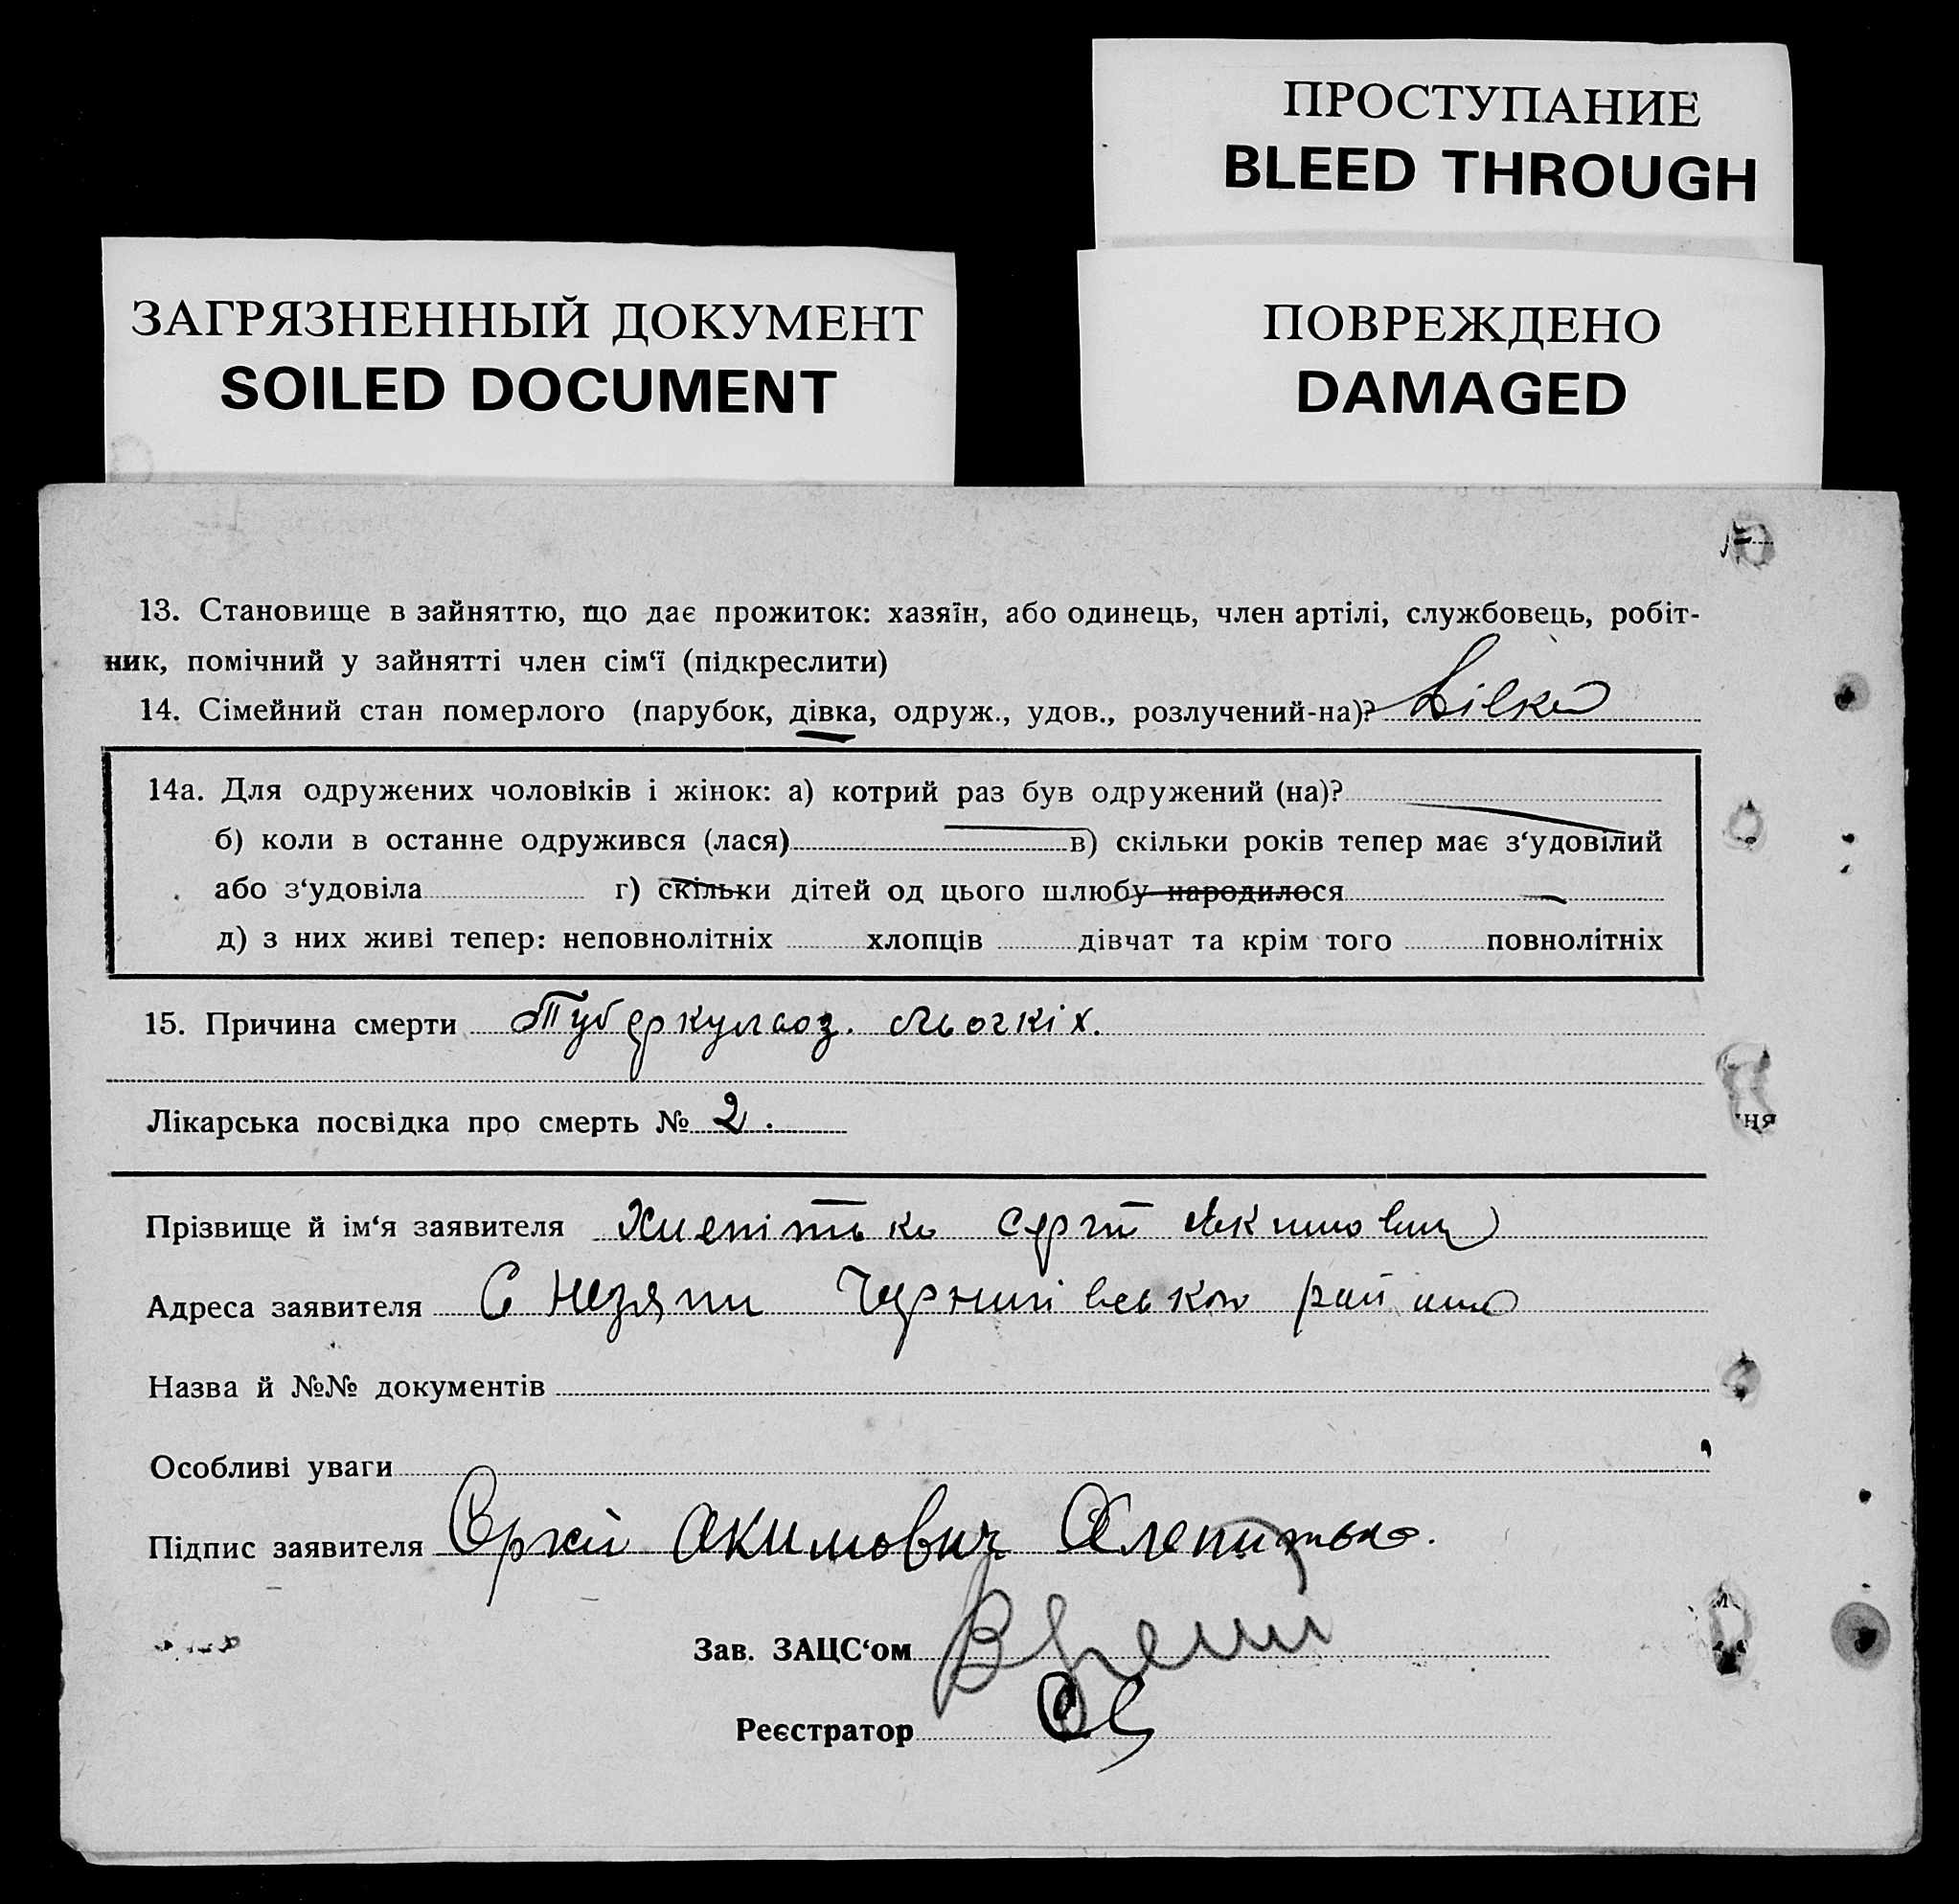 ПРОСТУПАНИЕ
BLEED THROUGH
ЗАГРЯЗНЕННЫЙ ДОКУМЕНТ
SOILED DOCUMENT
ПОВРЕЖДЕНО
DAMAGED
13. Становище в зайняттю, що дає прожиток: хазяїн, або одинець, член артілі, службовець, робіт-
ник, помічний у зайнятті член сім‘ї (підкреслити)
14. Сімейний стан померлого (парубок, дівка, одруж., удов., розлучений-на)?
14а. Для одружених чоловіків і жінок: а) котрий раз був одружений (на)?
б) коли в останне одружився (лася) в) скільки років тепер має з‘удовілий
або з‘удовіла г) скільки дітей од цього шлюбу народилося
д) з них живі тепер: неповнолітніх хлопців дівчат та крім того повнолітніх
15. Причина смерти Туберкульоз. льогкіх.
Лікарська посвідка про смерть № 2.
ня
Прізвище й ім‘я заявителя Сергій
Адреса заявителя С
Назва й №№ документів
Особливі уваги
Підпис заявителя Акимович
Зав. ЗАЦС‘ом
Реєстратор